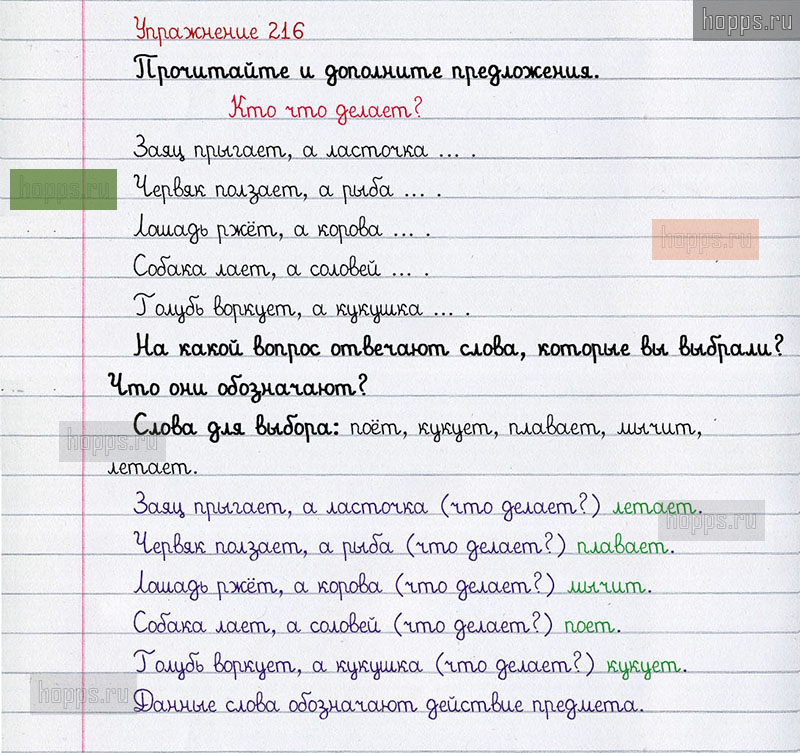 hopps.ru
Упражнение 216
Прочитайте и дополните предложения.
Кто что делает?
Заяц прыгает, а ласточка ... .
hopps.ru
Червяк ползает, а рыба ... .
Лошадь ржёт, а корова ... .
hopps.ru
Собака лает, а соловей ... .
Голубь воркует, а кукушка ... .
На какой вопрос отвечают слова, которые вы выбрали?
Что они обозначают?
Слова для выбора: поёт, кукует, плавает, мычит,
hopps.ru
летает.
Заяц прыгает, а ласточка (что делает?) летает.
hopps.ru
Червяк ползает, а рыба (что делает?) плавает.
Лошадь ржёт, а корова (что делает?) мычит.
Собака лает, а соловей (что делает?) поет.
Голубь воркует, а кукушка (что делает?) кукует.
hopps.ru
Данные слова обозначают действие предмета.